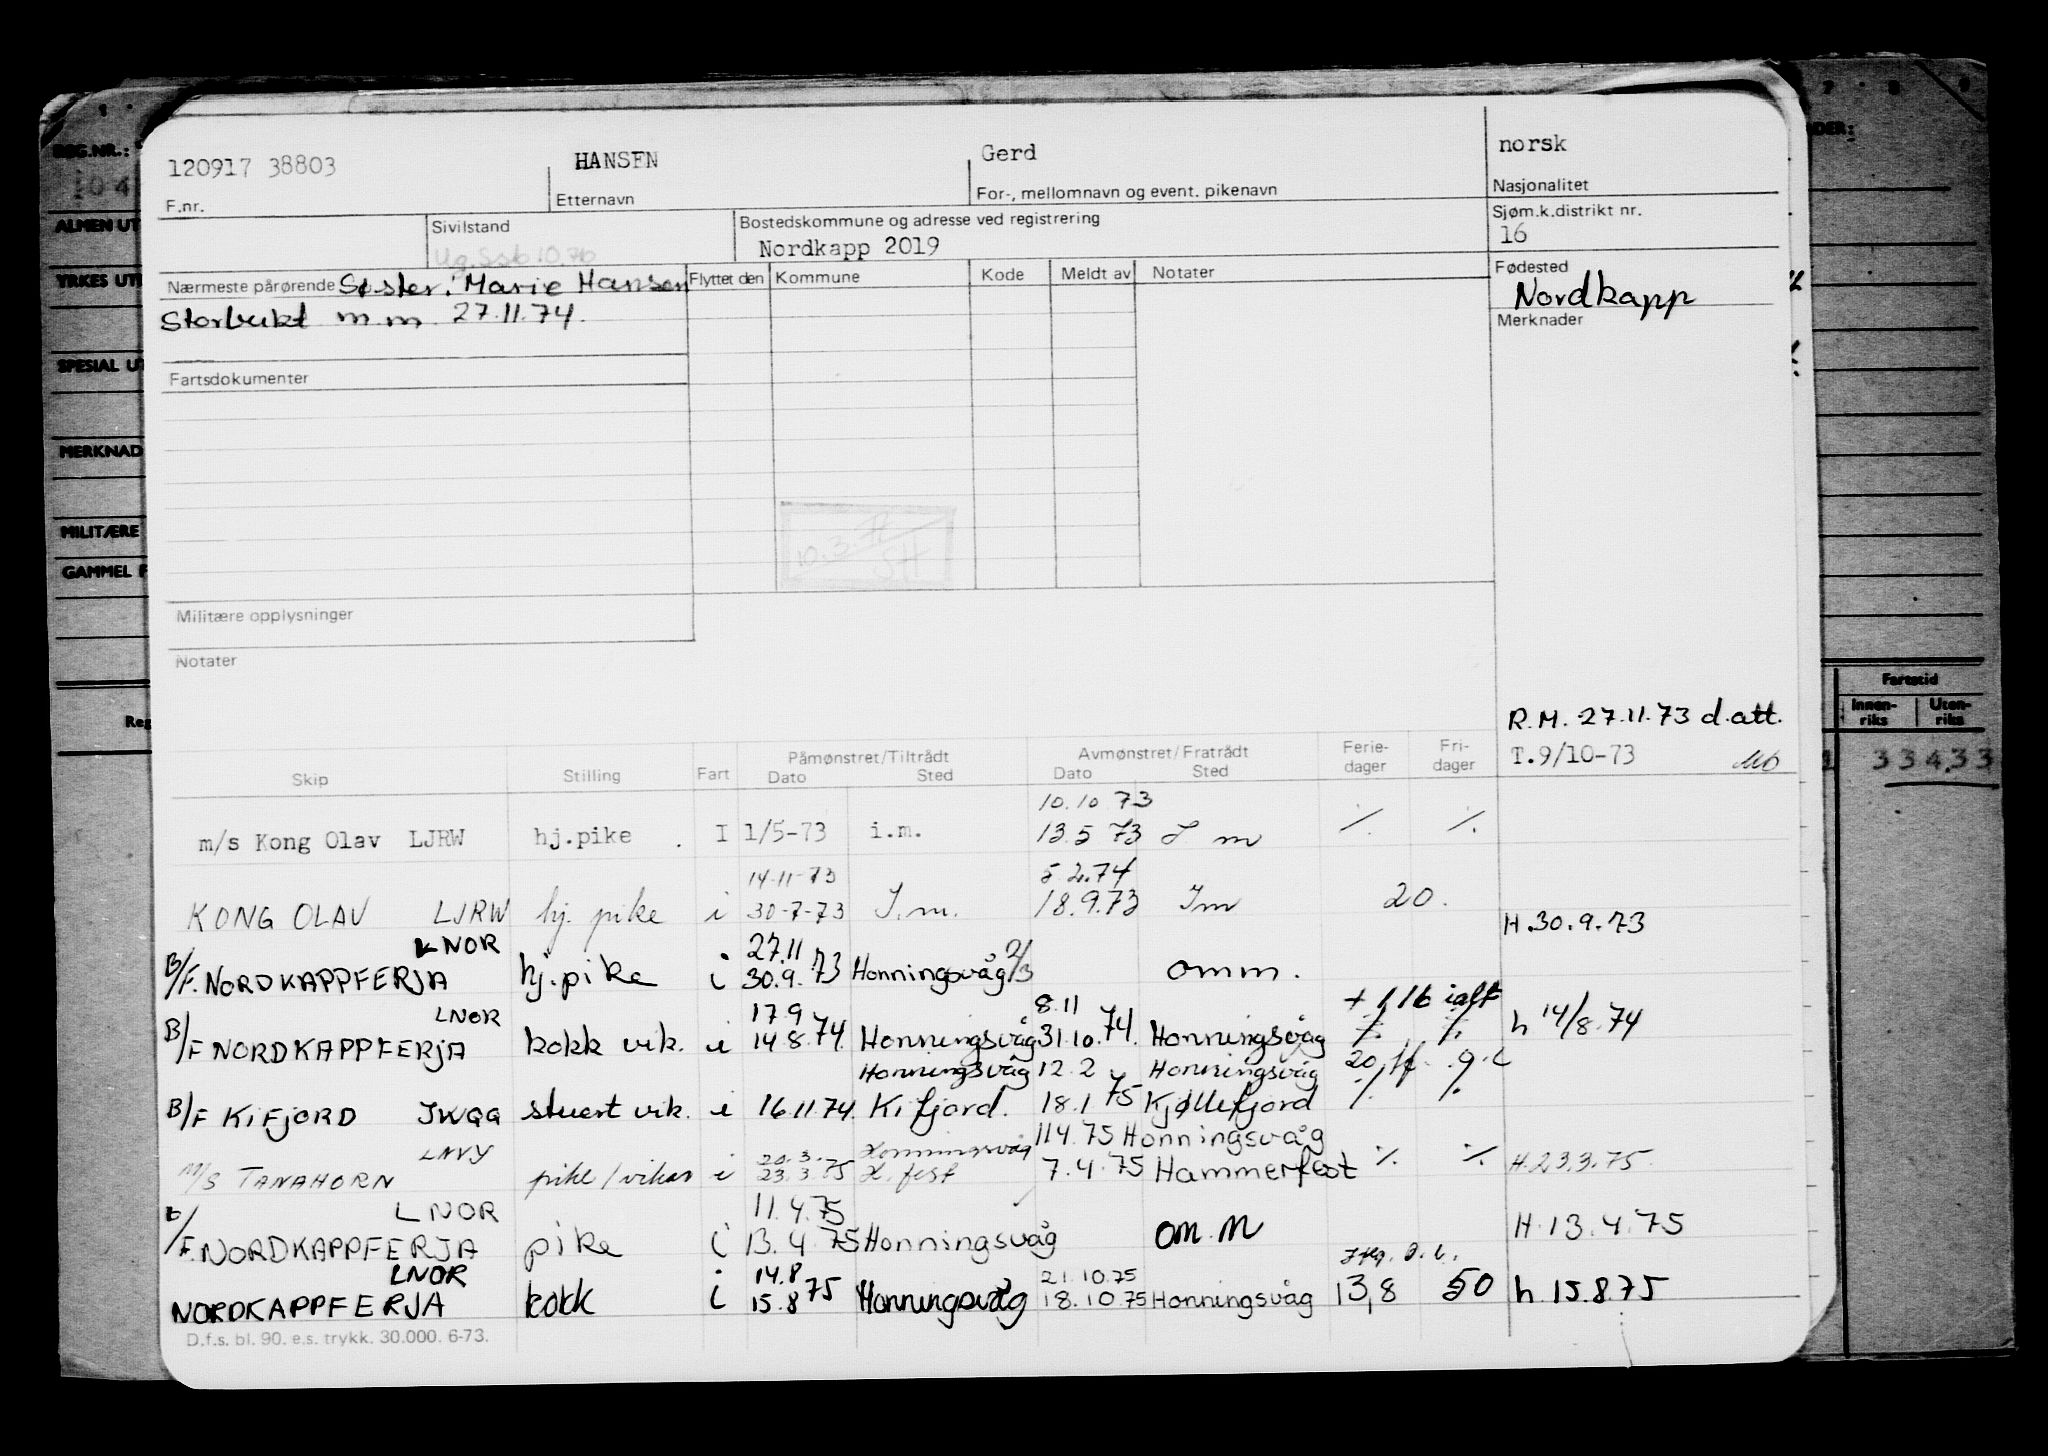 120917 38803 HANSEN Gerd norsk
F.nr. Etternavn For-, mellomnavn og event. pikenavn Nasjonalitet
Sivilstand Bostedskommune og adresse ved registrering Sjøm.k.distrikt nr.
Ug. Ssb 10.76 Nordkapp 2019 16
Nærmeste pårørende Søster: Marie Hansen Flyttet den Kommune Kode Meldt av Notater Fødested
Storbukt m m 27.11.74. Nordkapp
Merknader
Fartsdokumenter
10.3.77
SH
Militære opplysninger
Notater
R.M. 27.11.73 d.att.
Påmønstret/Tiltrådt Avmønstret/Fratrådt Ferie- Fri-
Skip Stilling Fart Dato Sted Dato Sted dager dager T.9/10-73
10.10.73
m/s Kong Olav LJRW hj.pike . I 1/5-73 i.m. 13.5 73 I m % %
14-11-73 5.2.74
KONG OLAV LJRW hj. pike i 30-7-73 I.m. 18.9.73 Im 20. H.30.9.73
LNOR 27.11 2/3
B/F. NORDKAPPFERJA hj.pike i 30.9.73 Honningsvåg omm.
LNOR 17.9 8.11 + 1/16 ialt
B/F NORDKAPPFERJA kokk vik. i 14.8.74. Honningsvåg 31.10.74. Honningsvåg % % h 14/8.74
Honningsvåg 12.2 Honningsvåg 20
B/F KIFJORD JWGG stuert vik. i 16.11.74. Kifjord. 18.1 75 Kjøllefjord % %
LNVY 20.3. Honningsvåg 11 4.75 Honningsvåg
M/S TANAHORN pike/vikar i 23.3.75 H.fest 7.4.75 Hammerfest % % H.23.3.75.
LNOR 11.4.75
B/F. NORDKAPPFERJA pike i 13.4.75 Honningsvåg om.m H.13.4.75
LNOR 14.8 21.10.75
NORDKAPPFERJA kokk i 15.8 75 Honningsvåg 18.10.75 Honningsvåg 13,8 50 h.15.8.75
D.f.s. bl. 90. e.s. trykk. 30.000. 6-73.
REG.NR.:
104
ALMEN UT
YRKES UT
SPESIAL UT
MERKNAD
MILITÆRE
GAMMEL F
Reg
7 8 9
DER:
Fartstid
Innen-riks Uten-riks
334,33